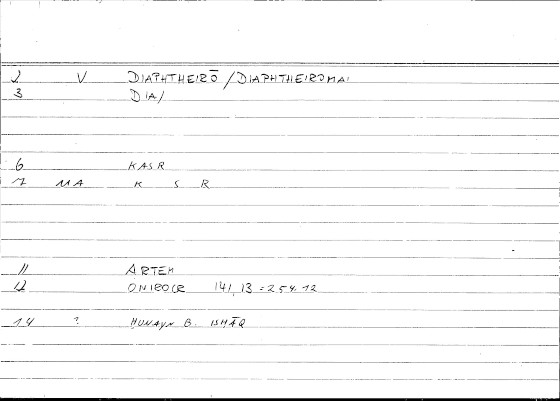 2 V DIAPHTHEIRŌ / DIAPHTHEIROMAI
3 DIA/
6 KASR
7 MA K S R
11 ARTEM
12 ONIROCR 141,13 = 254.12
14 ? HUNAYN B. ISHĀQ